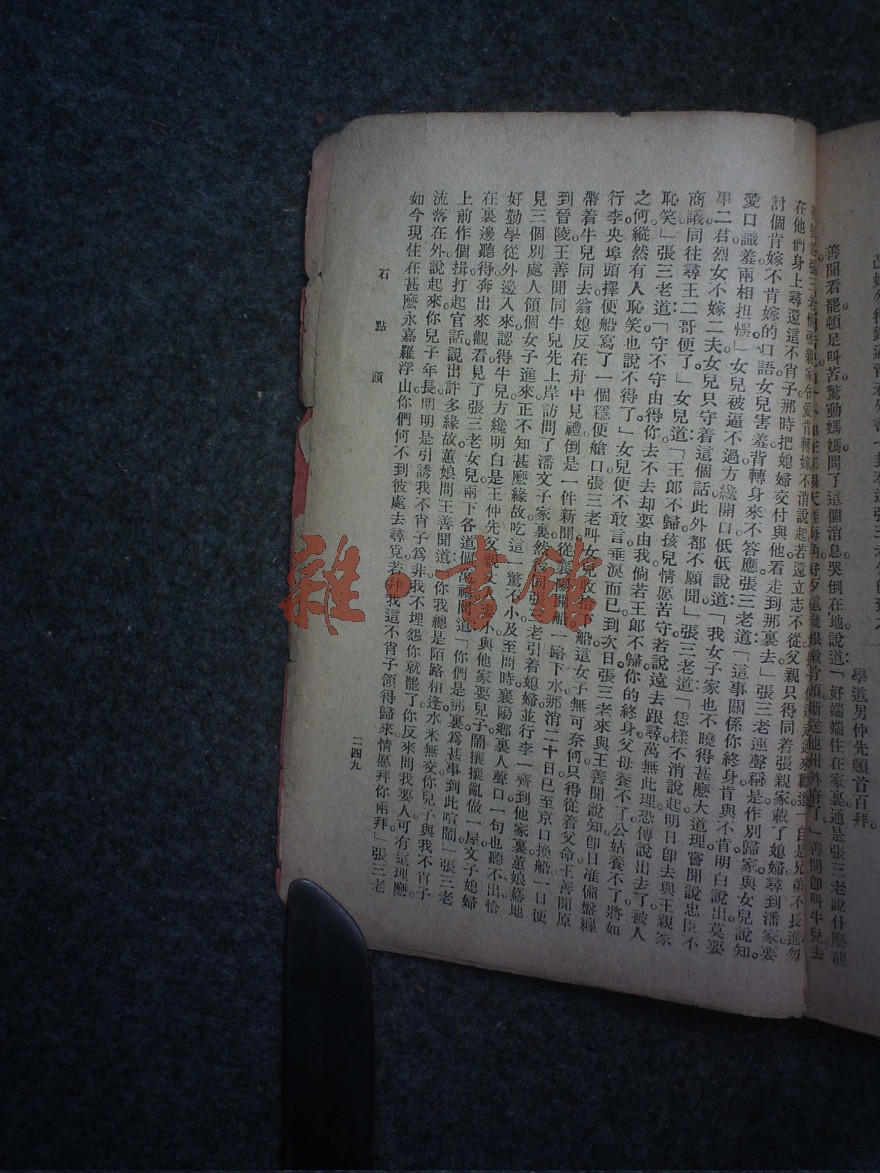 學道男仲先頓首百拜。
善聞看罷頓足叫苦驚動媽媽問了這個消息哭倒在地說道「好端端住在家裏通是張三老說什麼
善聞卽叫牛兒去
在他們身上尋還這不肖子那時把媳婦交付與他看走到那裏去」張三老連聲稱是作別歸家與女兒說知。
討個肯嫁不肯嫁的口語女兒害羞背轉身來不答應張三老道「這事關係你終身肯與不肯明白說出莫要
愛口識羞兩相担悞」女兒被逼不過方纔開口低低說道「我女子家也不曉得甚麼大道理嘗聞說忠臣不
事二君烈女不嫁二夫女兒只守着這個話此外都不願聞」張三老道「恁樣不消說起明日卽去與王親家
商議同往尋王二哥便了」女兒道「王郎不歸孩兒情愿苦守若說遠去跟尋萬無此理恐傳說出去了被人
恥笑」張三老道「守不守由得你去不去却要由我倘若王郎不歸你的終身父母養不了公姑養不了將如
之何縱然有人恥笑也說不得了」女兒便不敢言垂淚而已到次日張三老來與王善聞說知卽日准備盤纏
行李央埠頭擇便船寫了一個穩便艙口張三老叫女兒收拾船這女子無可奈何只得從着父命王善聞原
帶着牛兒同去翁媳反在舟中見禮倒是一件新聞從襄陽開船一路下水那消二十日已至京口換船一日便
到晉陵王善聞同牛兒先上岸訪問了潘文子家裏然後同張三老引着媳婦並行李一齊到他家裏蕙娘驀地
見三個別處人領個女子進來正不知甚麼緣故吃這一驚不小及至問時襄陽鄉裏人聲口一句也聽不出恰
好勤學從外邊入來認得牛兒方纔明白是王仲先父親丈人與他家要兒子鬧攘攘亂做一屋文子媳婦
在裏邊聽得奔出來觀看見了張三老女兒兩下各道個萬福問道「你們是那裏爲甚事到此喧鬧」張三老
上前作個揖打起官話說出許多緣故蕙娘問王善聞道「你我總是陌路相逢水米無交你兒子與我不肖子
流落在外說起來你兒子年長明明是引誘我不肖子爲非我不埋怨你就罷了你反來問我要人可有這理麼
如今現住在甚麼永嘉羅浮山你們何不到彼處去尋覓若我這不肖子領得歸來情愿拜你兩拜」張三老
石點頭
二四九
雜·書館